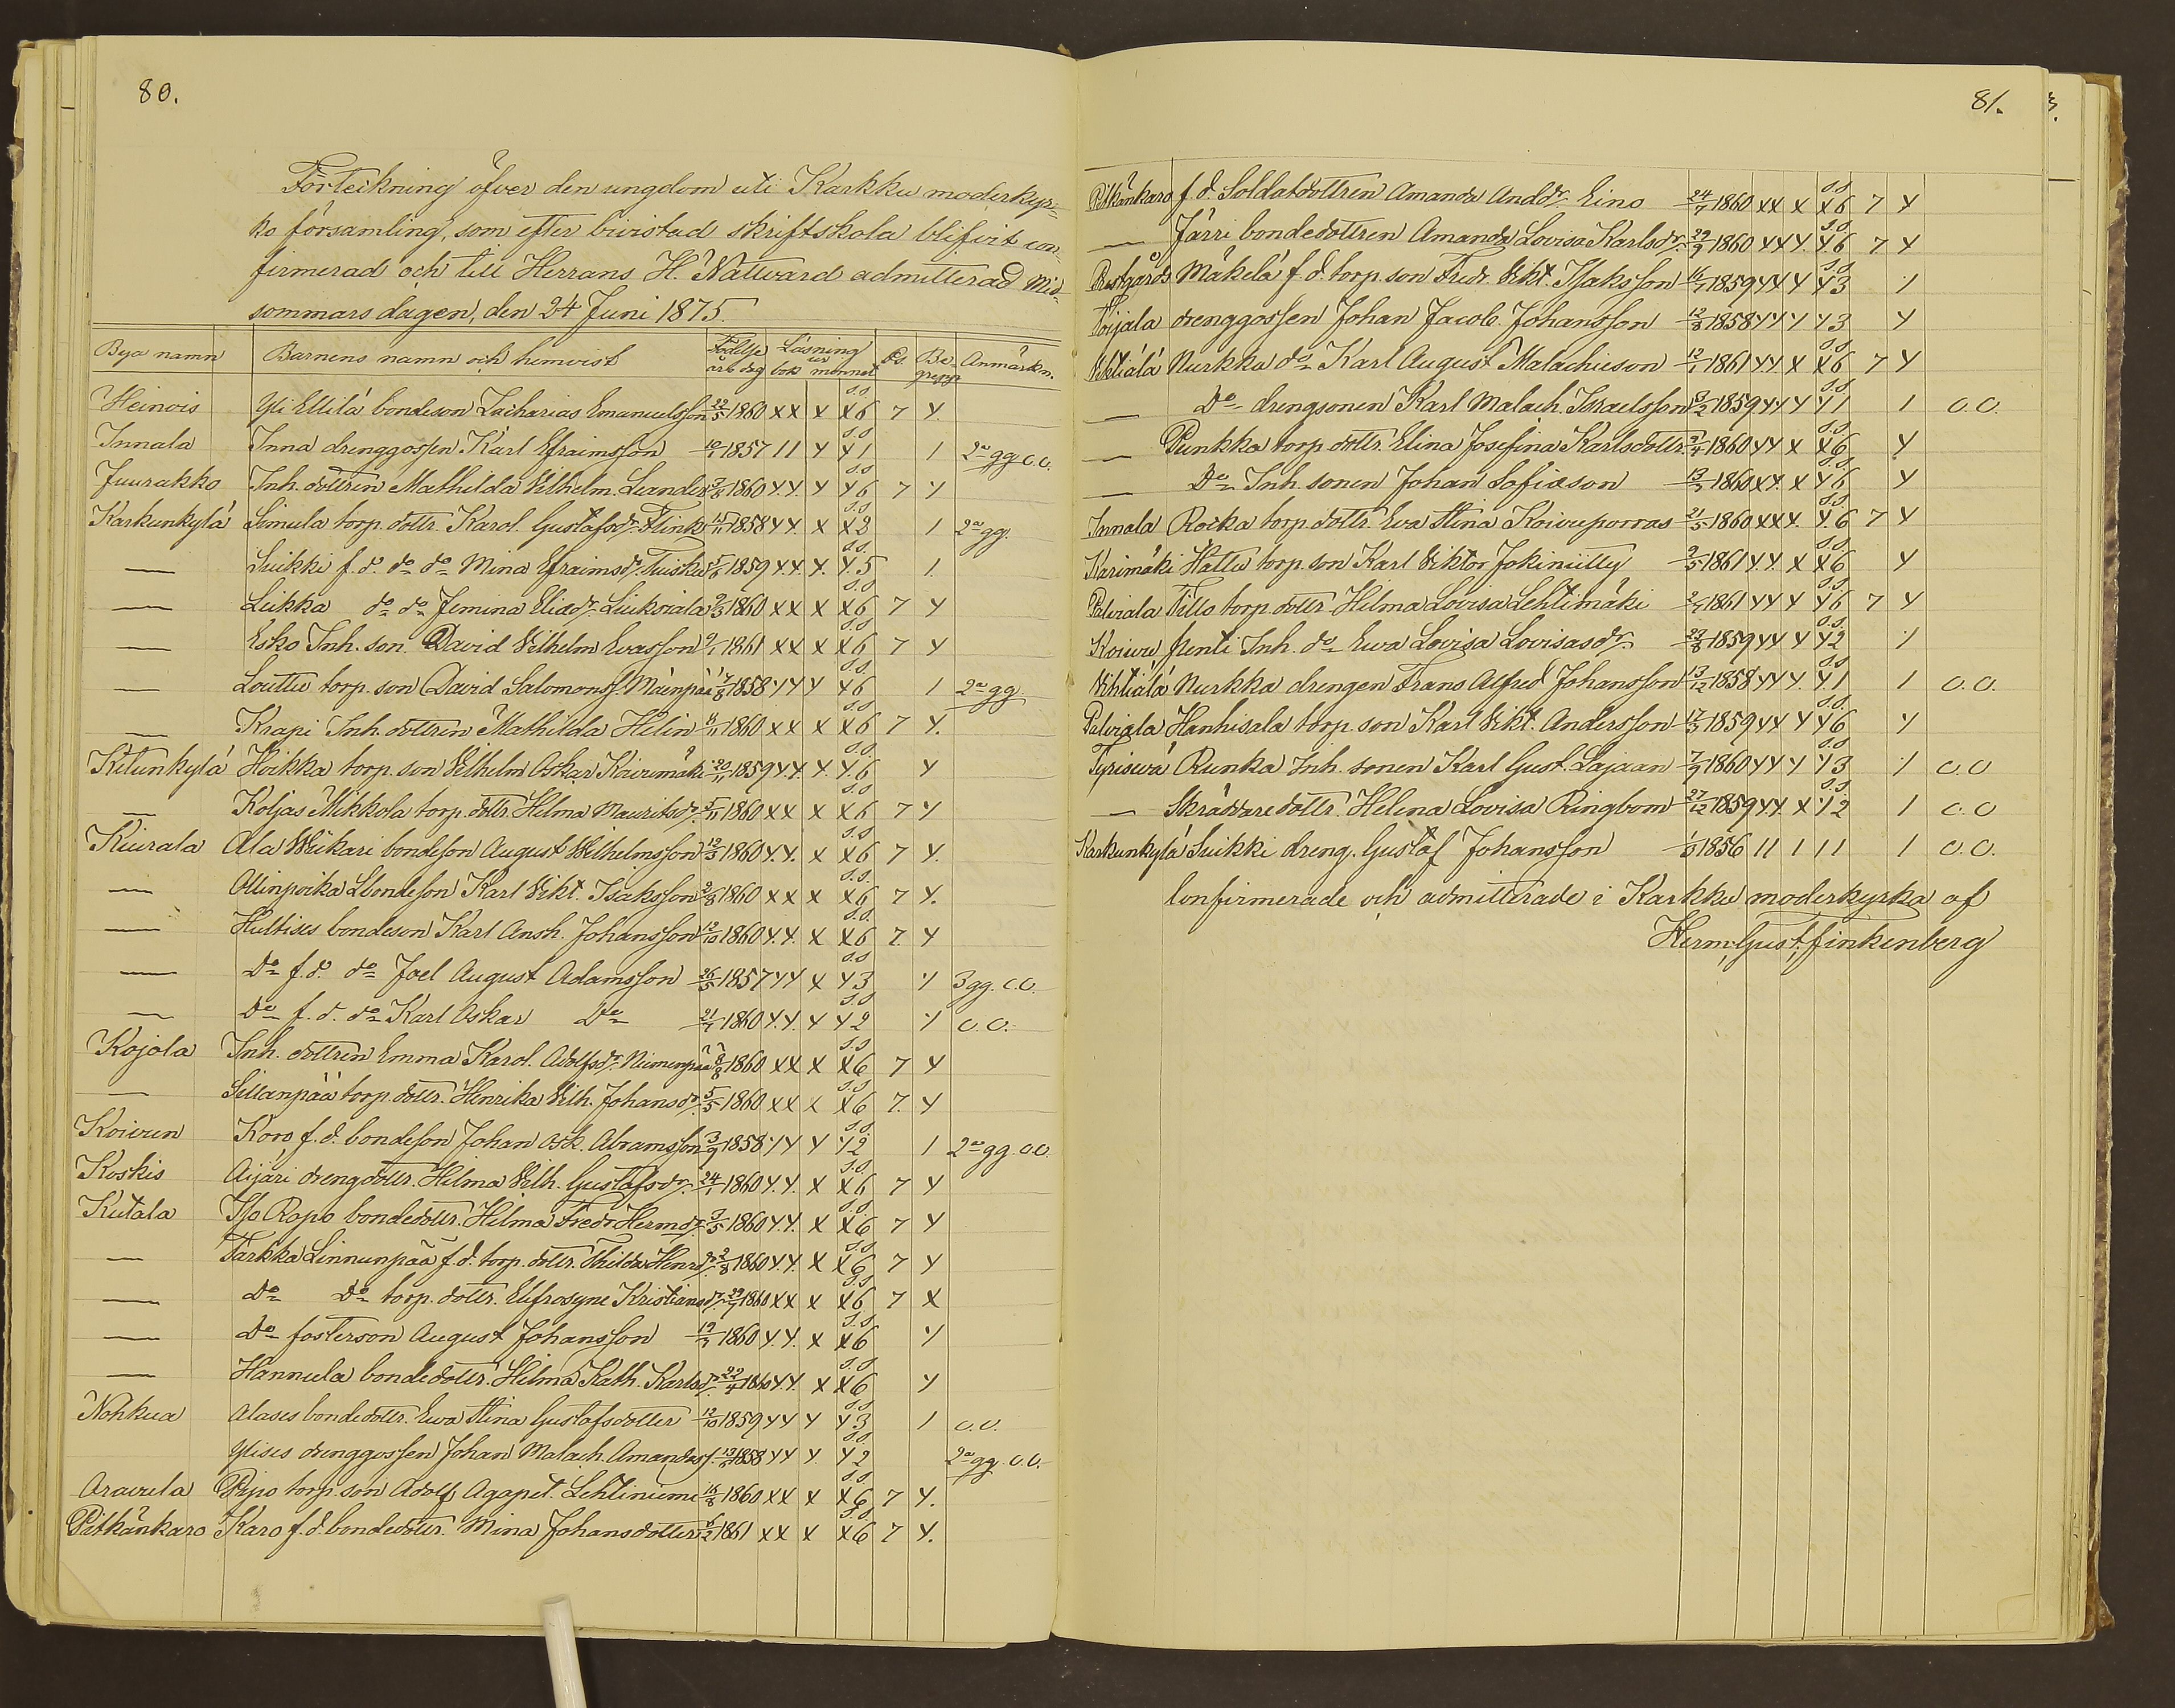 80.
Förteckning öfver den ungdom uti Karkku moderkyr-
ko församling, som efter bivistad skriftskola blifvit con-
firmerad och till Herrans H. Nattvard admitterad Mid-
sommars dagen, den 24 Juni 1875.
Bya namn Barnens namn och hemvist Födelse år o dag Läsning i bok ur minnet Ps. Be-grepp Anmärkn.
Heinois Yli Ellilä bondeson Zacharias Emanuelsson 22/5 1860 xx x x6 7 y.
Innala Inna drenggossen Karl Efraimsson 1857 11 y y1 1 2a gg o.o.
Juurakko Inh. dottren Mathilda Vilhelm. Leander 3/8 1860 y.y. y y6 7 y
Karkunkylä Simula torp. dottr. Karol. Gustafsdr. Flink 15/11 1858 y y. x x2 1 2a gg.
— Luikki f.d. do do Mina Efraimsdr. Tuisku 5/6 1859 y.y. y. y.5 1.
— Leikka do do Jemina Eliedr. Liukoiala 2/3 1860 xx x x6 7 y
— Esko Inh. son David Vilhelm Evasson 9/1 1861 xx x x6 7 y
— Louttu torp. son David Salomonss. Mäenpää 17/8 1858 y y y y6 1 2a gg.
— Krapi Inh. dottren Mathilda Helin 8/11 1860 xx x x6 7 y.
Kitunkylä Hoikka torp. son Vilhelm Oskar Koivumäki 20/11 1859 y.y. y. y.6 y
— Koljas Mikkola torp. dottr. Helma Mauritsdr. 5/11 1860 xx x x6 7 y
Kiurala Ala Wiikari bondeson August Wilhelmsson 12/3 1860 y.y. x x6 7 y.
— Ollinpoika L bondeson Karl Vikt. Isaksson 2/8 1860 xx x x6 7 y.
— Hultisis bondeson Karl Ansh. Johansson 12/10 1860 y.y. x x6 7. y
— Do f.d. do Joel August Adamsson 26/5 1857 y y x y3 y 3 gg. o.o.
— Do f.d. do Karl Oskar Do 21/7 1860 y.y. y y2 y o.o.
Kojola Inh. dottren Emma Karol. Adolfsdr. Niemenpää 8/8 1860 xx x x6 7 y
— Sillanpää torp. dottr. Henrika Vilh. Johansdr. 5/5 1860 xx x x6 7. y
Koivun Koro, f.d. bondeson Johan Osk. Abramsson 3/9 1858 y y y y2 1 2a gg. o.o.
Koskis Äijäri drengdottr. Hilma Vilh. Gustafsdr. 24/1 1860 y.y. x x6 7 y
Kutala Iso Rapo bondedottr. Hilma Fredr Hermsdr. 3/5 1860 y.y. x x6 7 y
— Tarkka Linnunpää f.d. torp. dottr. Thilda Henrsdr. 2/8 1860 y.y. x x6 7 y
— Do Do torp. dottr. Elifrosyne Kristiansdr. 29/9 1860 xx x x6 7 x
— Do fosterson August Johansson 19/7 1860 y.y. x x6 y
— Hannula bondedottr. Hilma Kath. Karlsdr. 22/4 1860 y.y. x x6 y
Nohkua Alases bondedottr. Ewa Stina Gustafsdotter 12/10 1859 y y y y3 1 o.o.
Ylises drenggossen Johan Malach. Amandas. 1858 y y y. y2 2a gg. o.o.
Aravula Pipo torp. son Adolf Agapet. Lehtiniemi 18/8 1860 xx x x6 7 y.
Pitkänkaro Karo f.d. bondedottr. Mina Johansdotter 6/2 1861 xx x x6 7 y.
81.
Pitkänkaro f.d. Soldatdottren Amanda Anddr. Eino 24/7 1860 xx x x6 7 y
— Järri bondedottren Amanda Lovisa Karlsdr. 29/9 1860 y y y. y.6 7. y
Prestgårds Mäkelä f.d. torp. son Fredr. Vikt. Isaksson 16/7 1859 y y y y3 y
Toijala drenggossen Johan Jacob. Johansson 12/8 1858 y y y y3 y
Vihtiälä Nurkka do Karl August Malachieson 12/1 1861 y y x x6 7 y
— Do drengsonen Karl Malach. Israelsson 13/2 1859 y y y y1 1 o.o.
— Punkka torp. dottr. Elina Josefina Karlsdottr. 9/4 1860 y y x x6 y
— Do Inh. sonen Johan Sofiason 13/7 1860 xx. x y6 y
Innala Rocka torp. dottr. Eva Stina Koivuporras 21/5 1860 xx y. y.6 7 y
Karimäki Hattu torp. son Karl Viktor Jokiniitty 2/5 1861 y.y. x x6 y
Palviala Tillo torp. dottr. Hilma Lovisa Lehtimäki 2/7 1861 y y y y6 7 y
Koivu Penti Inh. do Ewa Lovisa Lovisasdr. 23/8 1859 y y y y2 y
Vihtiälä Nurkka drengen Frans Alfred Johansson 13/12 1858 y y y. y.1 1 o.o.
Palviala Hanhisala torp. son Karl Vikt. Andersson 17/3 1859 y y y y6 y
Tyrisevä Runka Inh. sonen Karl Gust. Lajaan 7/9 1860 y y y y3 y o.o
— Skräddaredottr. Helena Lovisa Ringbom 27/12 1859 y.y. x y2 1 o.o
Karkunkylä Luikki dreng. Gustaf Johansson 1856 11 1 11 1 o.o.
Confirmerade och admitterade i Karkku moderkyrka af
Herm. Gust. Finkenberg